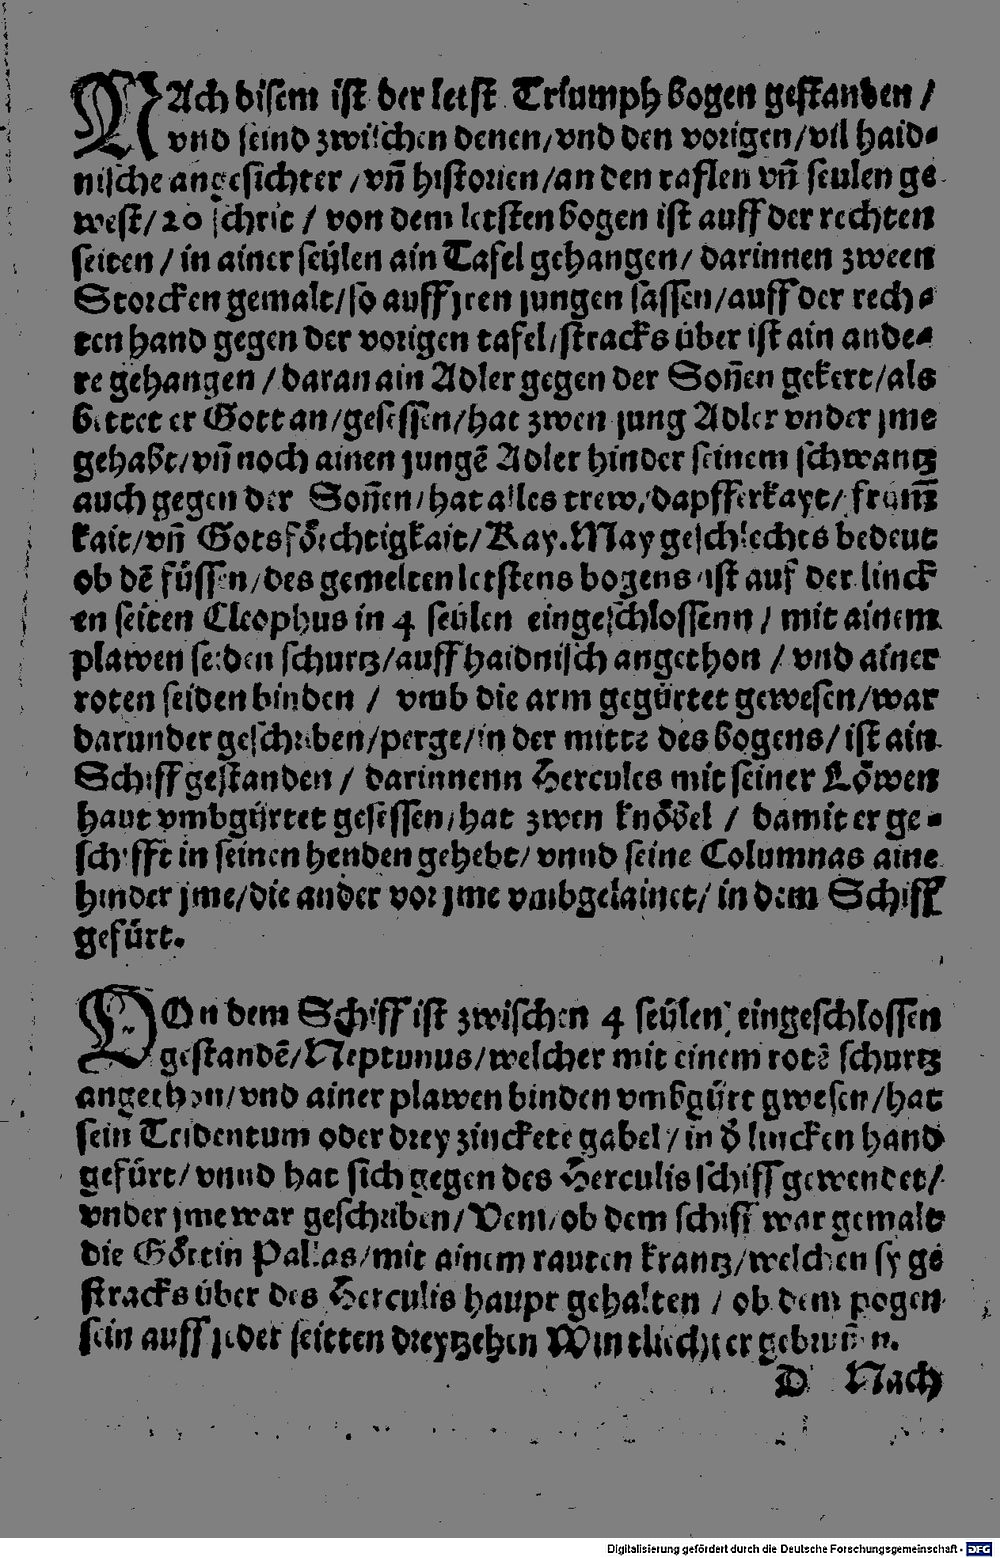 NAch disem ist der letst Triumph bogen gestanden /
vnd seind zwischen denen/vnd den vorigen/vil haid⸗
nische angesichter /vñ historien/an den taflen vñ seulen ge
west/20 schrit / von dem letsten bogen ist auff der rechten
seiten / in ainer seülen ain Tafel gehangen/ darinnen zween
Storcken gemalt/so auff jren jungen sassen/auff der rech⸗
ten hand gegen der vorigen tafel/stracks über ist ain ande⸗
re gehangen /daran ain Adler gegen der Soñen gekert/als
bettet er Gott an/gesessen/hat zwen jung Adler vnder jme
gehabt/vñ noch ainen jungē Adler hinder seinem schwantz
auch gegen der Soñen/hat alles trew/dapfferkayt/ frum̄
kait/vñ Gotsförchtigkait/Kay.May geschlechts bedeut
ob dē füssen/des gemelten letstens bogens ist auf der linck
en seiten Cleophus in 4 seülen eingeschlossenn / mit ainem
plawen seiden schurtz/auff haidnisch angethon / vnd ainer
roten seiden binden / vmb die arm gegürtet gewesen/war
darunder geschriben/perge/in der mitte des bogens/ ist ain
Schiff gestanden / darinnenn Hercules mit seiner Löwen
haut vmbgürtet gesessen/hat zwen knöbel / damit er ge⸗
schifft in seinen henden gehebt/ vnnd seine Columnas aine
hinder jme/die ander vor jme vmbgelainet/ in dem Schiff
gefürt.
VOn dem Schiff ist zwischen 4 seülen eingeschlossen
gestandē/Neptunus/welcher mit einem rotē schurtz
angethon/vnd ainer plawen binden vmbgürt gwesen/hat
sein Tridentum oder drey zinckete gabel/in d̕ lincken hand
gefürt/vnnd hat sich gegen des Herculis schiff gewendet/
vnder jme war geschriben/Veni/ob dem schiff war gemalt
die Göttin Pallas/mit ainem rauten krantz/welchen sy ge
stracks über des Herculis haupt gehalten / ob dem pogen
sein auff jeder seitten dreytzehen Wintliechter gebruñen.
D Nach
Digitalisierung gefördert durch die Deutsche Forschungsgemeinschaft - DFG